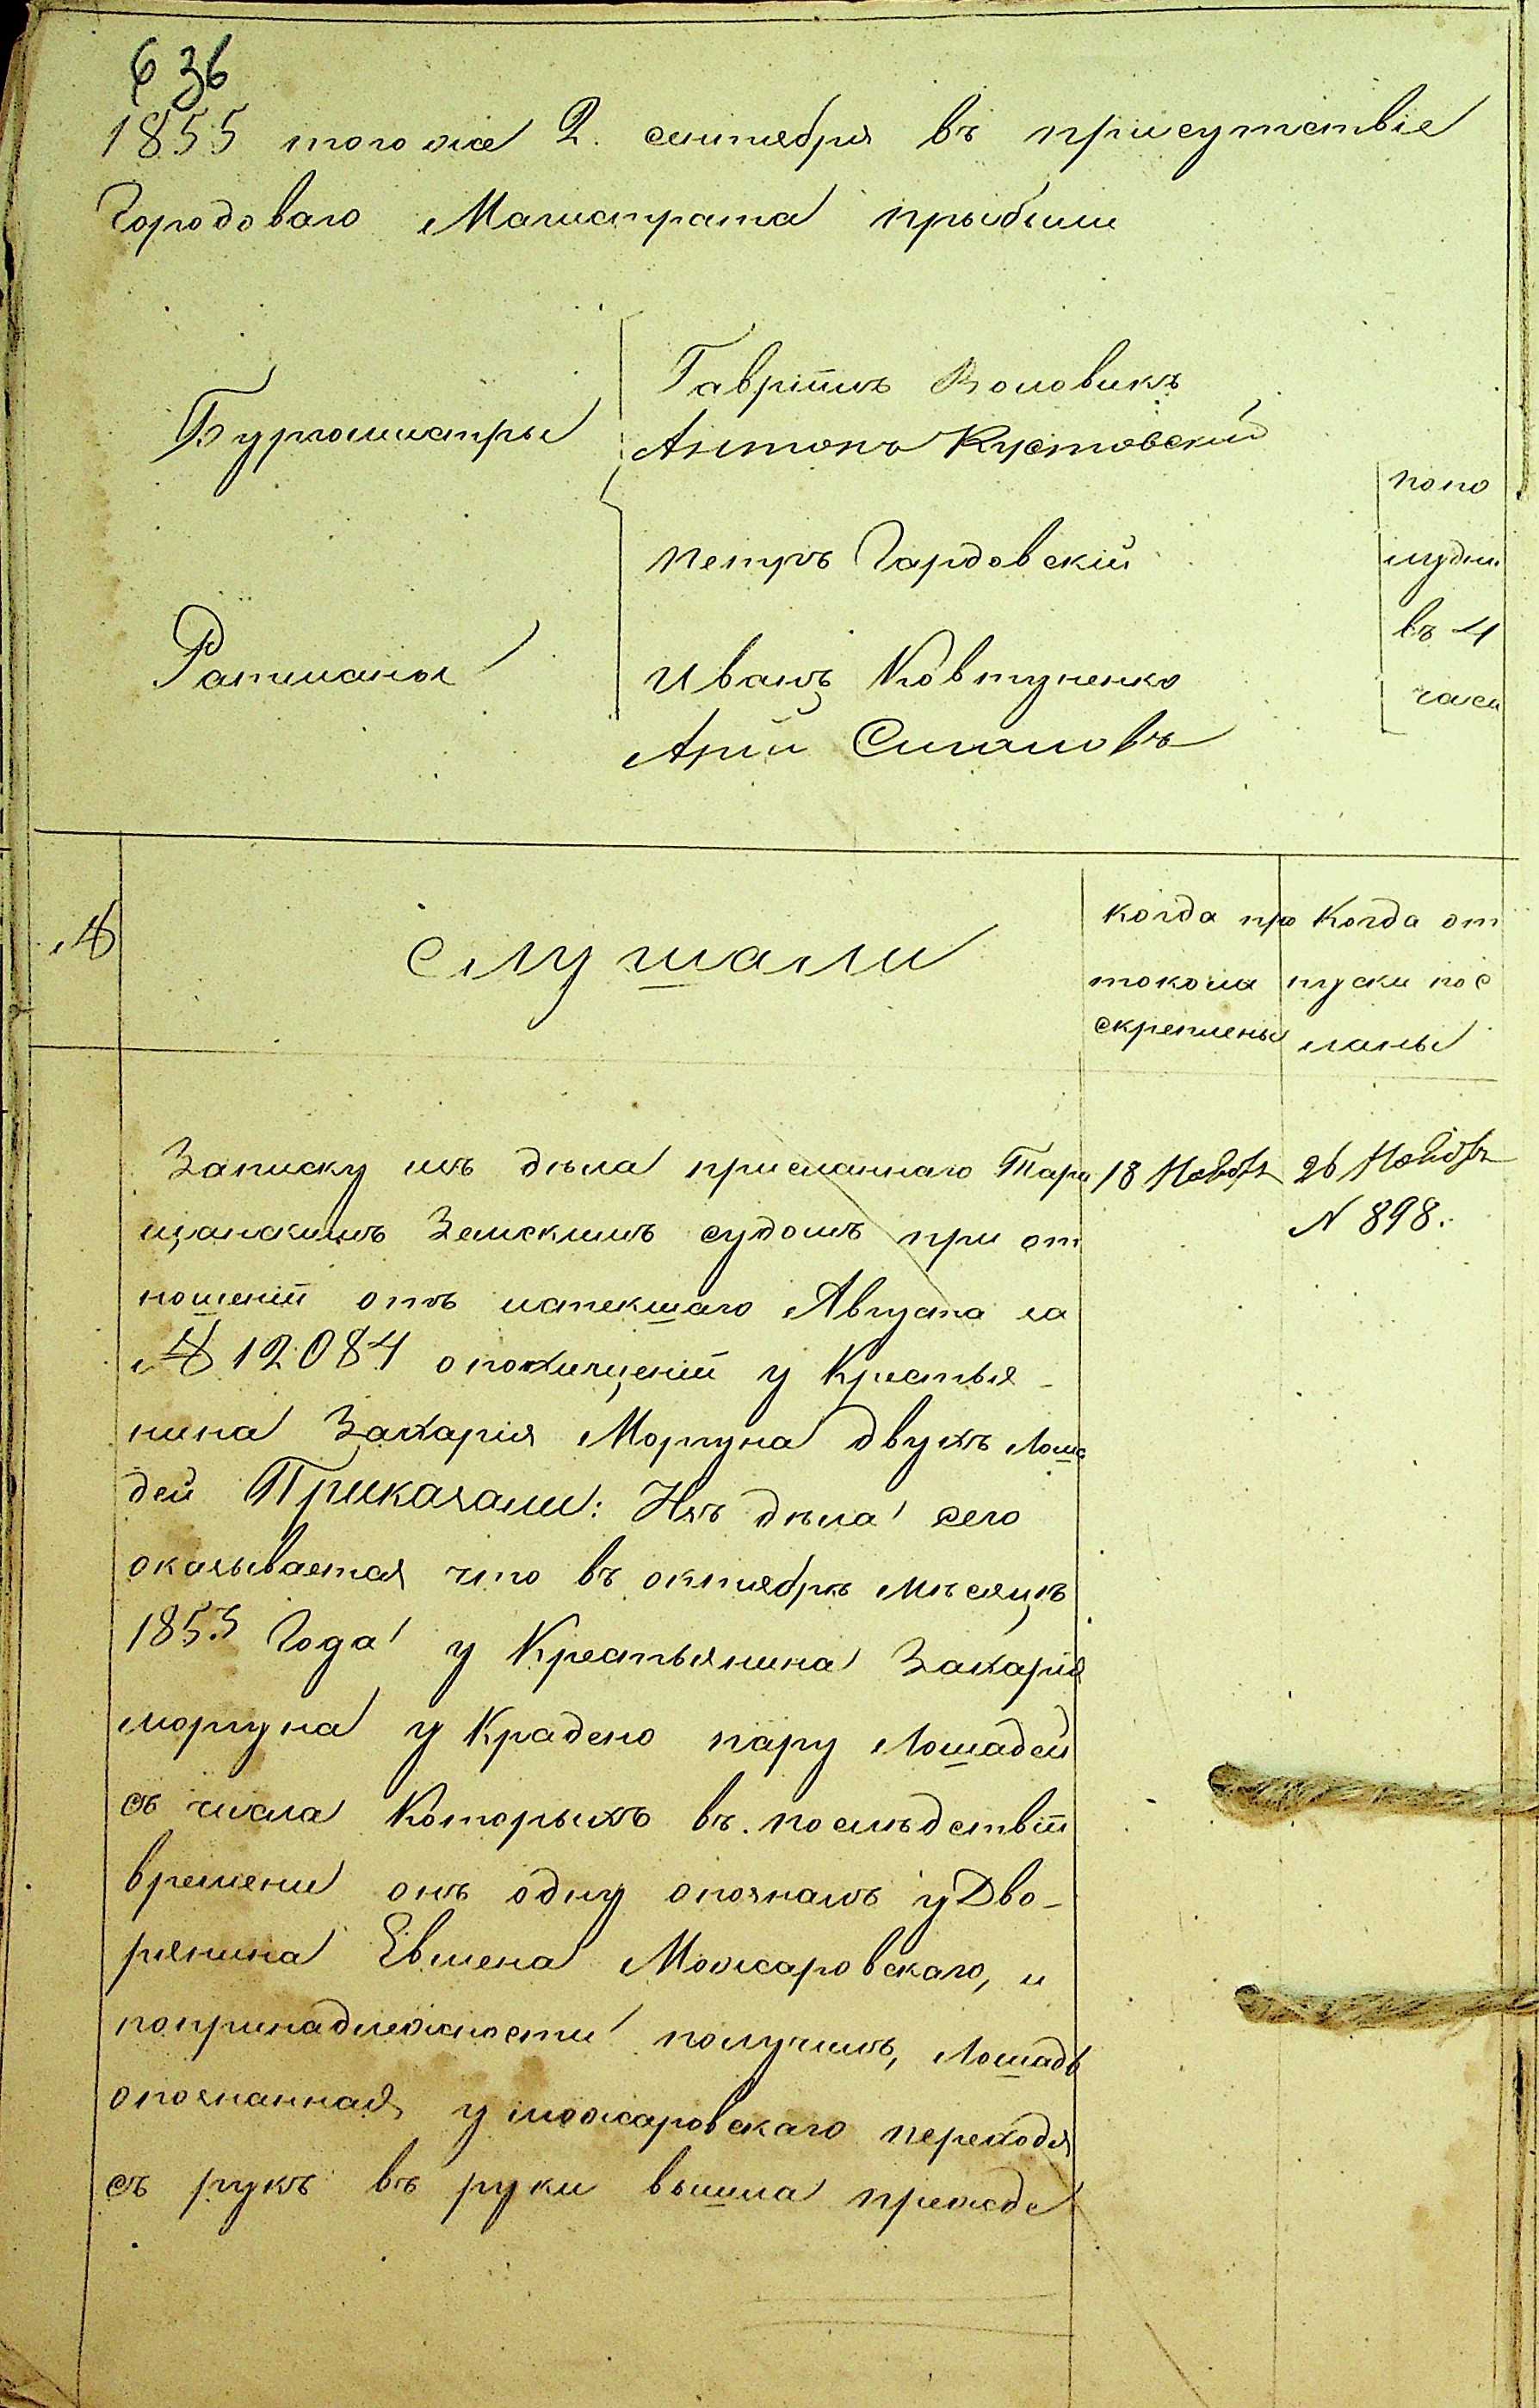 636
1855 того же 2. сентября въ присутствіе
Городоваго Магистрата прыбыли
Бургомистры
Гавріилъ Воловикъ
Антонъ Кустовскій
Петръ Гардовскій
попо
лудни
въ 4
часа
Ратманы
Иванъ Ковтуненко
Арій Сигаловъ
№
слушали
когда про
токола
скреплены
Когда от
пуски пос
ланы
Записку изъ дѣла присланнаго Тара
щанскимъ Земскимъ судомъ при от
ношеніи отъ истекшаго Августа за
№ 12084 опохищеніи у Крестья-
нина Захарія Моргуна двухъ лоша
дей Приказали: Изъ дѣла сего
оказывается что въ октябрѣ мѣсяцѣ
1853 Года у Крестьянина Захарія
моргуна у Крадено пару лошадей
съ числа Которыхъ въ. послѣдствіи
времени онъ одну опозналъ у Дво-
рянина Евмена Можаровскаго, и
попринадлежности получилъ, лошадь
опознанная у можаровскаго переходя
съ рукъ въ руки вышла прежде
18 Ноября
26 Ноября
N 898.